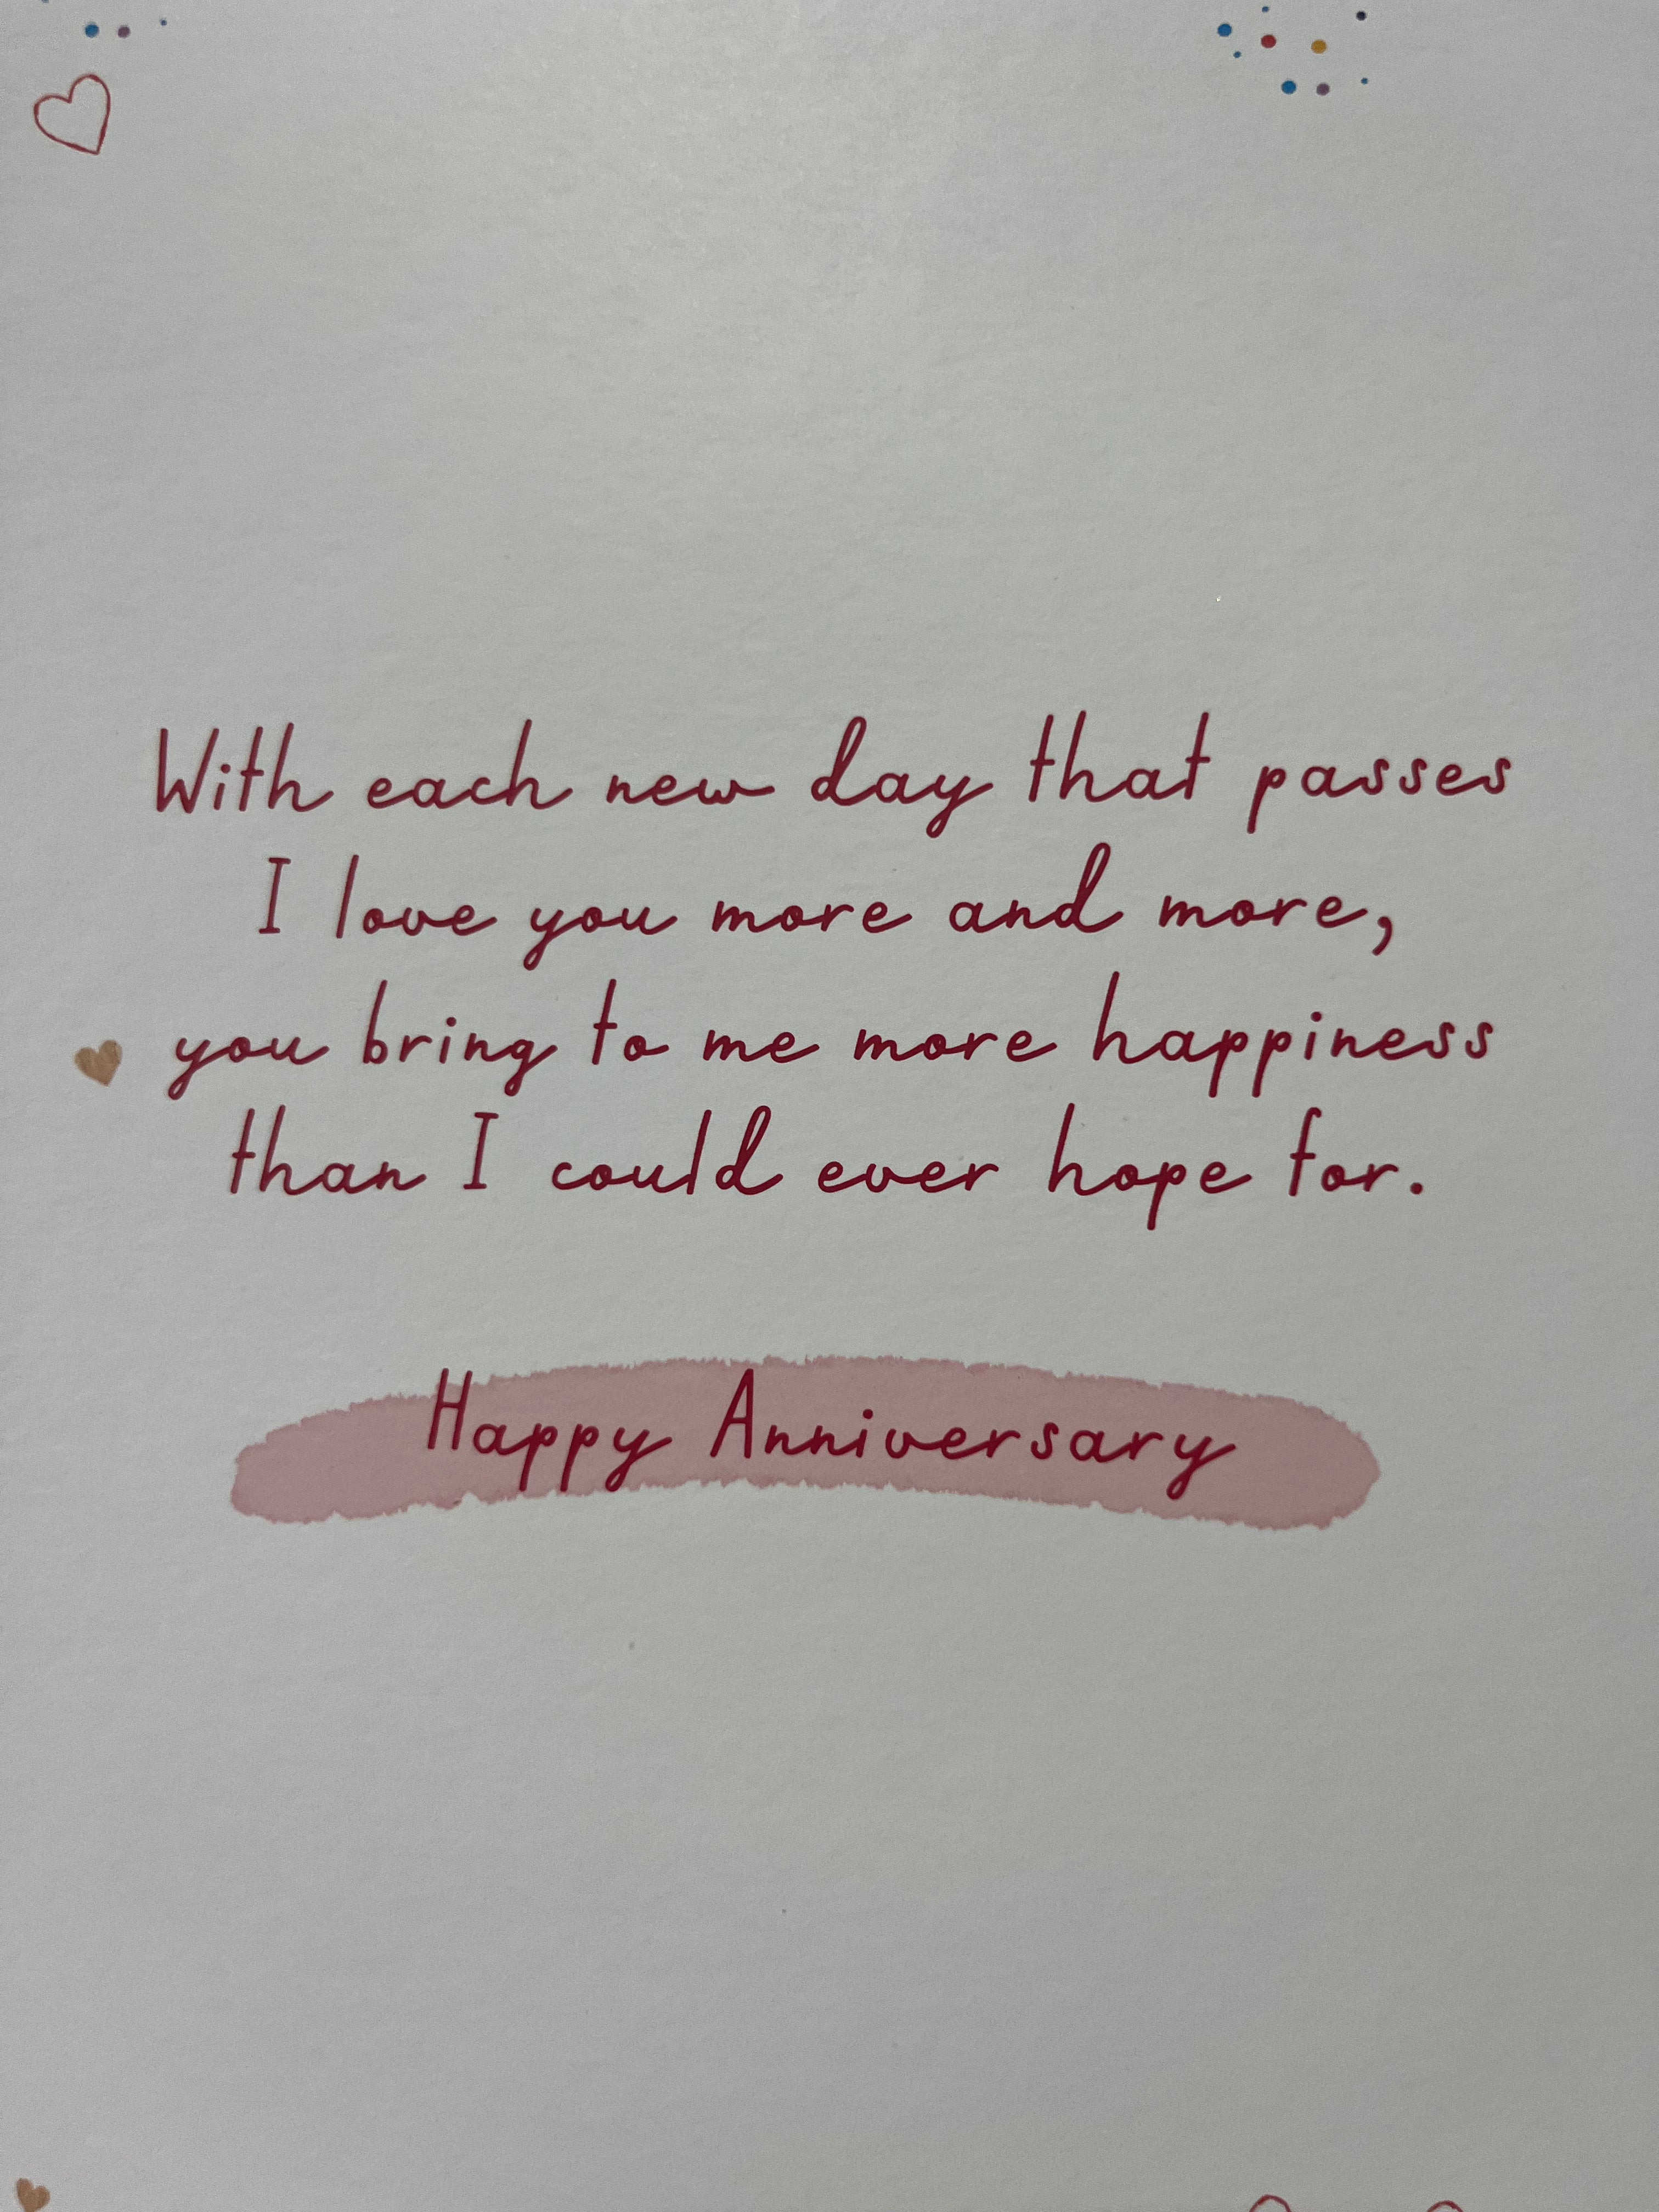 With each new day that passes
I love you more and more,
you bring to me more happiness
than I could ever hope for.
Happy Anniversary